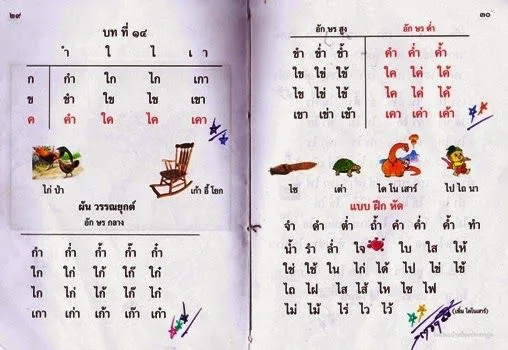 ๒๙
บท ที่ ๑๔
ำ ใ ไ เ า
ก กำ ใก ไก เกา
ข ขำ ใข ไข เขา
ค คำ ใค ไค เคา
ไก่ ป่า เก้า อี้ โยก
ผัน วรรณยุกต์
อัก ษร กลาง
กำ ก่ำ ก้ำ ก๊ำ ก๋ำ
ใก ใก่ ใก้ ใก๊ ใก๋
ไก ไก่ ไก้ ไก๊ ไก๋
เกา เก่า เก้า เก๊า เก๋า
๓๐
อัก ษร สูง อัก ษร ต่ำ
ขำ ข่ำ ข้ำ คำ ค่ำ ค้ำ
ใข ใข่ ใข้ ใค ใค่ ใค้
ไข ไข่ ไข้ ไค ไค่ ไค้
เขา เข่า เข้า เคา เค่า เค้า
ไซ เต่า ได โน เสาร์ ไป ไถ นา
แบบ ฝึก หัด
จำ ดำ ต่ำ ถ้ำ คำ ค่ำ ค้ำ ทำ
น้ำ รำ ล่ำ ใจ ใบ ใส ให้
ใช่ ใช้ ใน ไก่ ได้ ไป ไข่ ไข้
ไถ ไฝ ไส ไส้ ไห ไซ ไฟ
ไม่ ไม้ ไร่ ไว ไว้ (เพิ่ม ไดโนเสาร์)